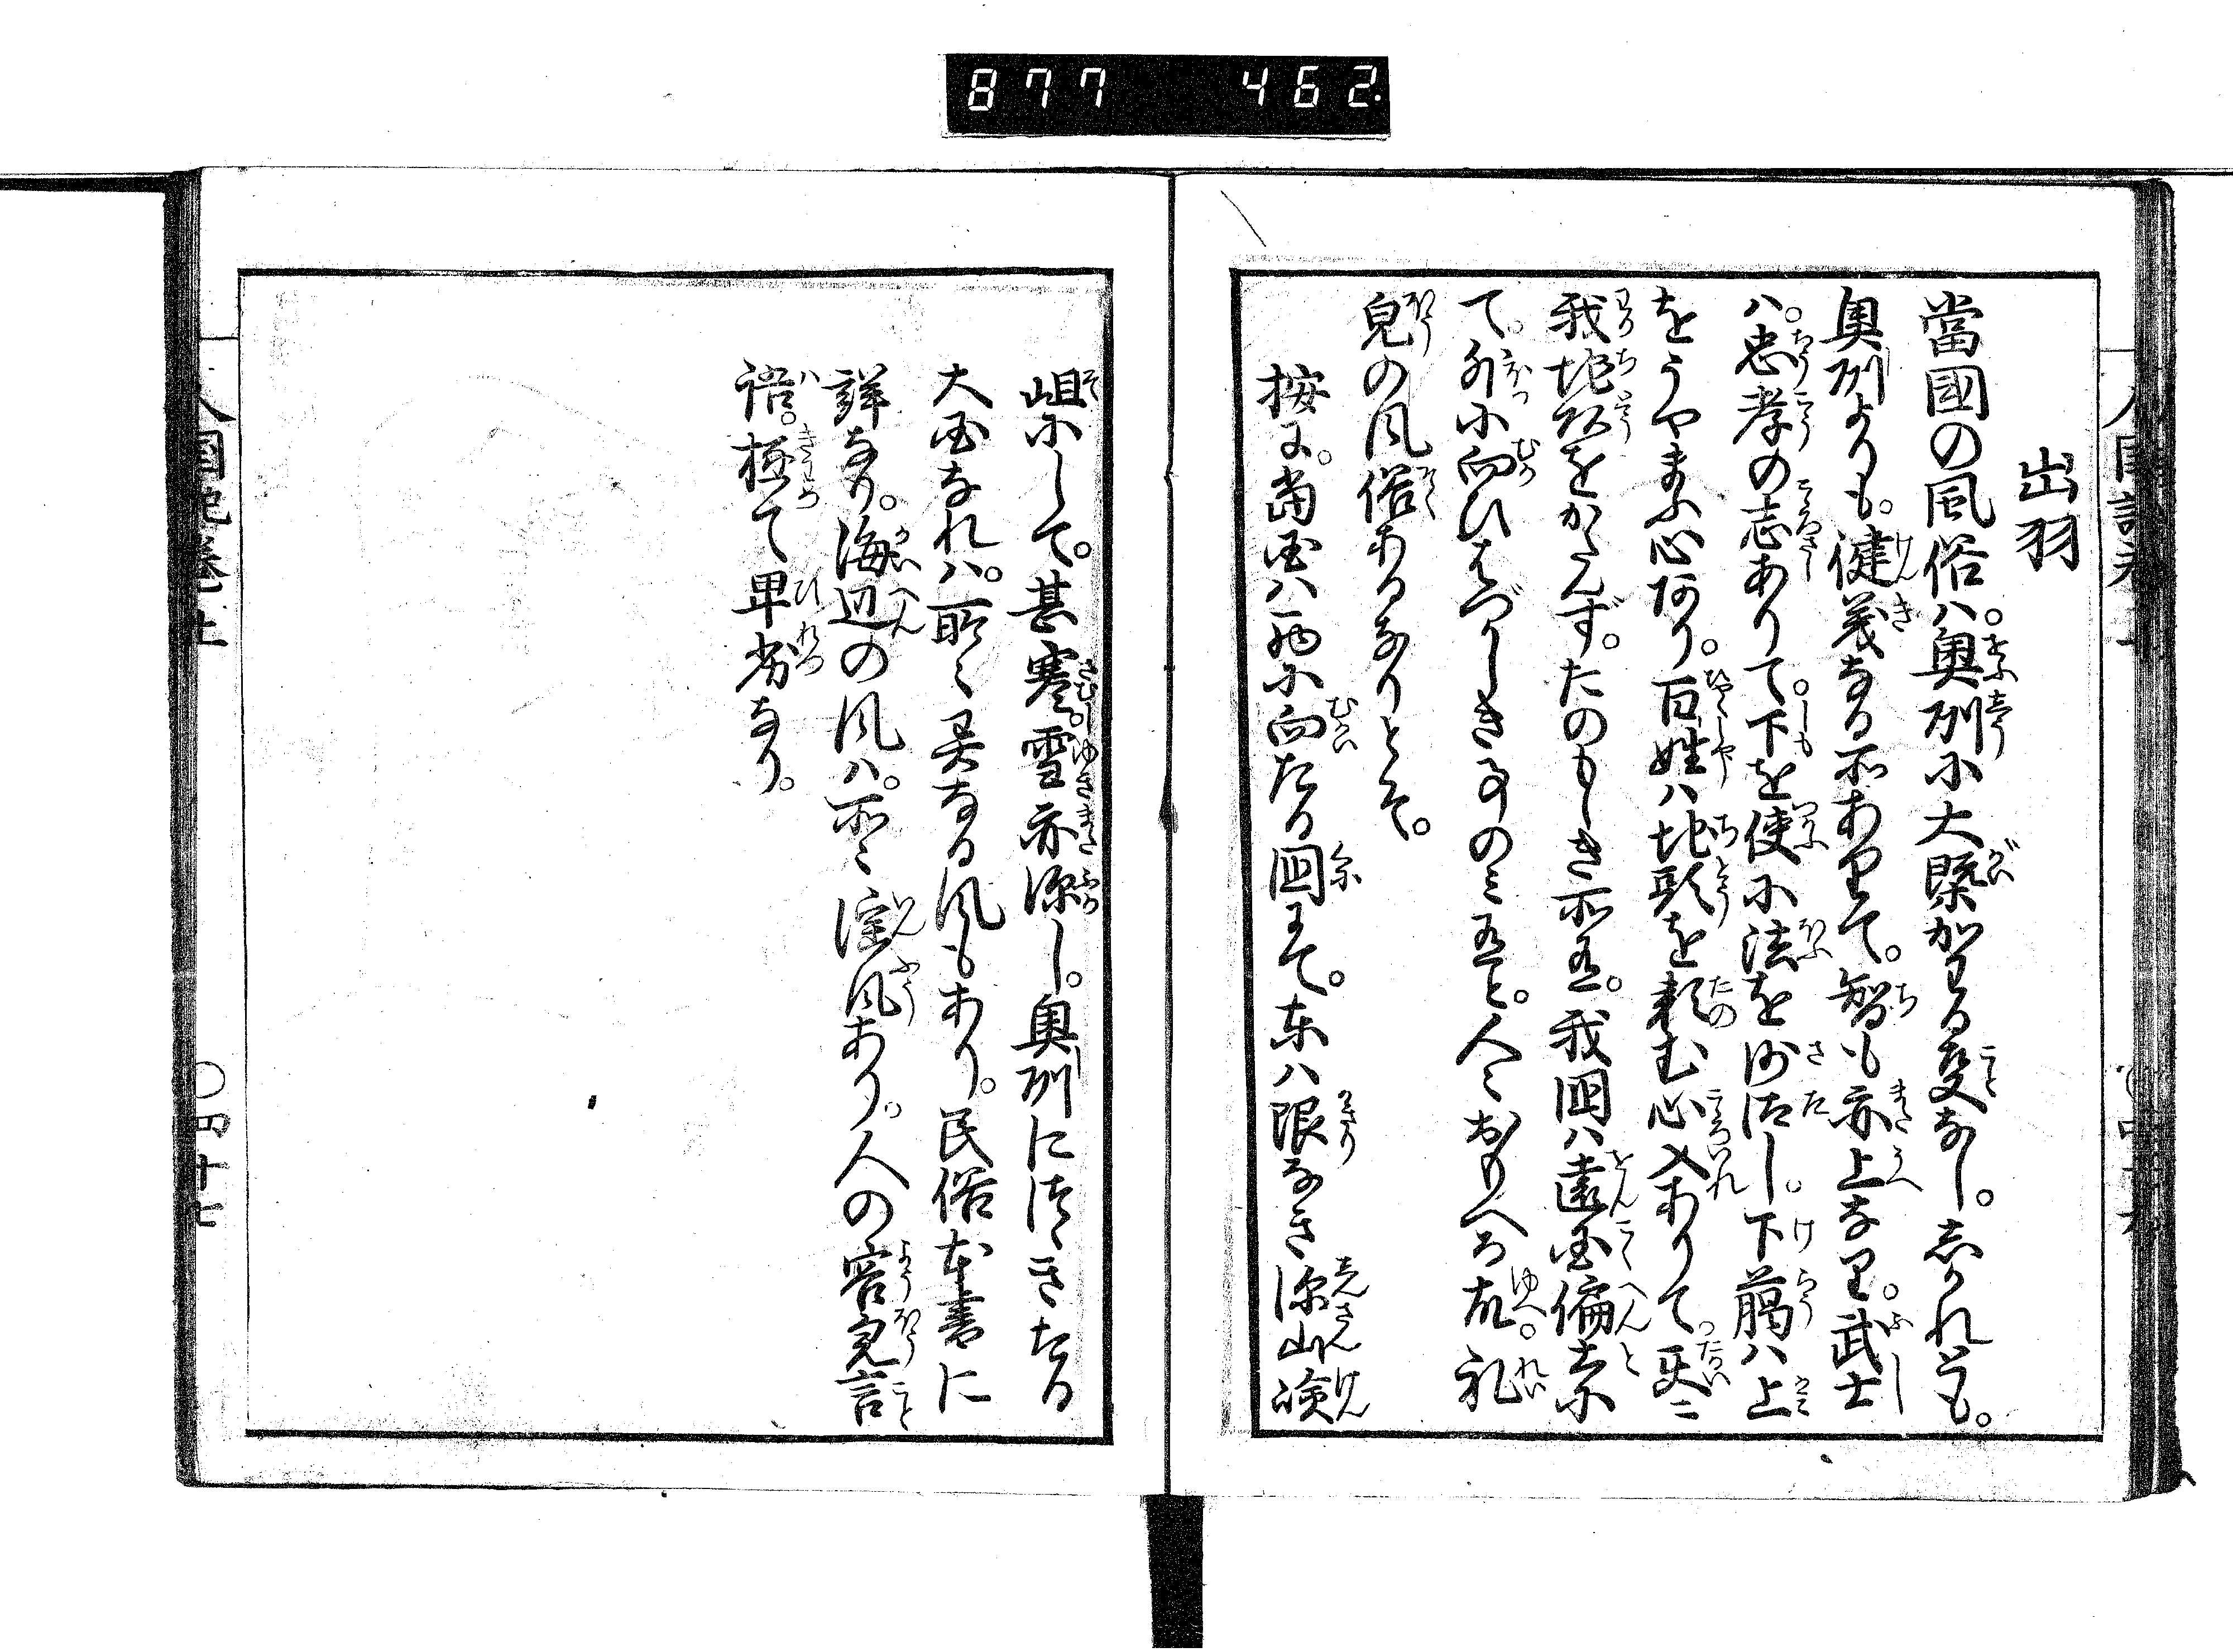 877 462
出羽
當國の風俗ハ。奥刕に大槩かはる事なし。しかれども。
奥刕よりも。健義なる所ありて。智も亦上なり。武士
ハ。忠孝の志ありて。下を使に法を沙汰し。下﨟ハ上
をうやまふ心あり。百姓ハ地頭を頼む心入ありて。
我地頭をかろんず。たのもしき所有。我国ハ遠国偏
て。外に向ひはづかしき事のミ有と。人々おもへる故。礼
皃の風俗あるなりとぞ。
按に。當国ハ西に向たる国にて。東ハ限なき深山嶮
岨にして。甚寒。雪亦深し。奥刕につゞきたる
大国なれハ。所〻異なる風もあり。民俗本書に
詳なり。海辺の風ハ。所〻淫風あり。人の容皃言
語ハ。極て卑劣なり。
人國記巻上
〇四十七